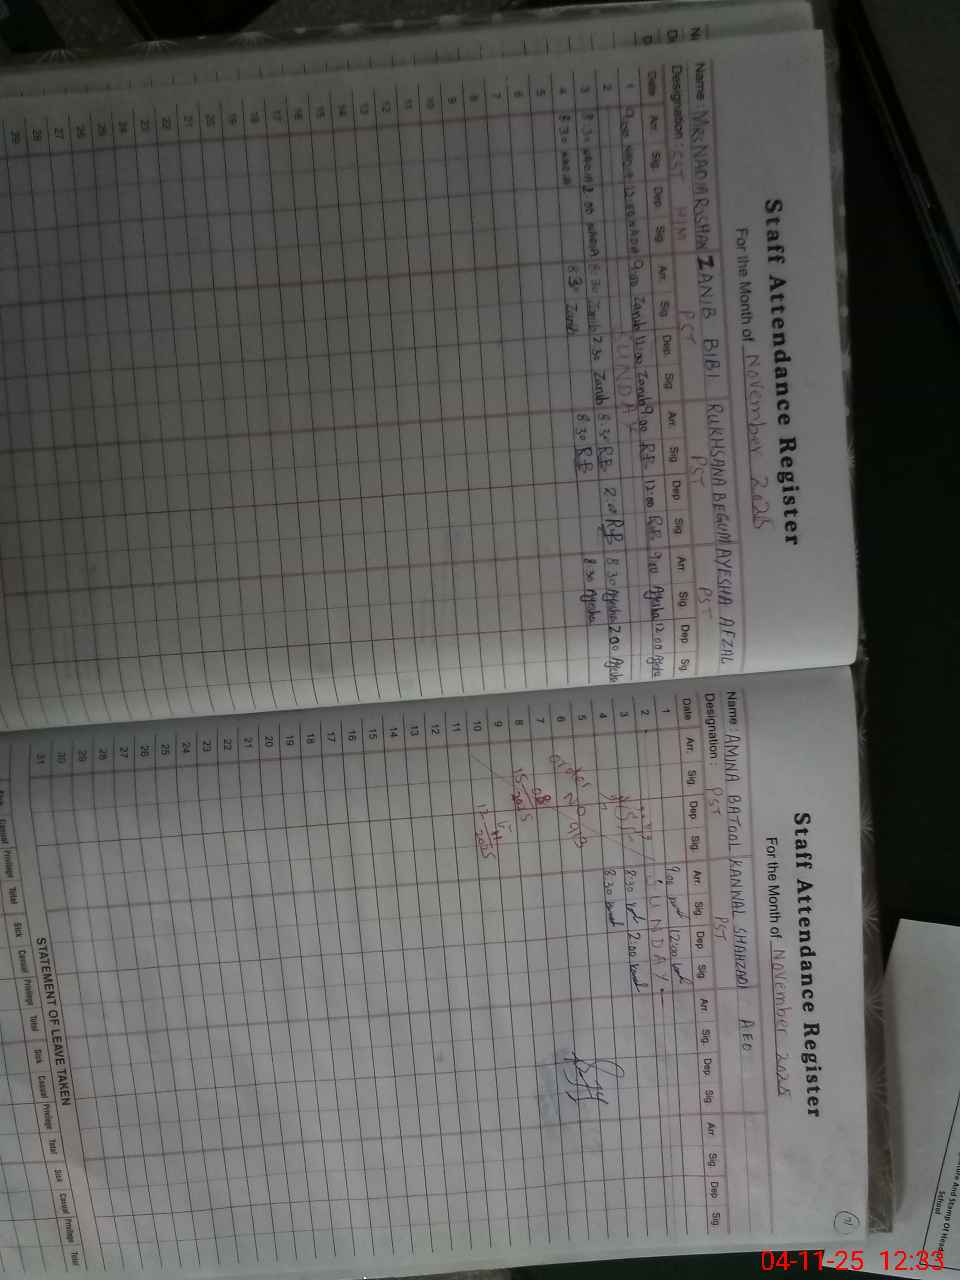 Staff Attendance Register
For the Month of November 2025
Name : Mrs NADIA RISHAN ZANIB BIBI RUKHSANA BEGUM AYESHA AFZAL
Designation : PST PST PST
Date Arr. Sig. Dep. Sig. Arr. Sig. Dep. Sig. Arr. Sig. Dep. Sig. Arr. Sig. Dep. Sig.
1 9:00 NADIA 12:00 NADIA 9:00 Zanib 12:00 Zanib 9:00 R.B 12:00 R.B 9:00 Ayesha 12:00 Ayesha
2 SUNDAY
3 8:30 NADIA 2:00 NADIA 8:30 Zanib 2:30 Zanib 8:30 RB 2:00 RB 8:30 Ayesha 2:00 Ayesha
4 8:30 NADIA 8:30 Zanib 8:30 RB 8:30 Ayesha
5
6
7
8
9
10
11
12
13
14
15
16
17
18
19
20
21
22
23
24
25
26
27
28
29
Staff Attendance Register
For the Month of November 2025
Name : AMINA BATOOL KANWAL SHAHZADI AEO
Designation : PST PST
Date Arr. Sig. Dep. Sig. Arr. Sig. Dep. Sig. Arr. Sig. Dep. Sig. Arr. Sig. Dep. Sig.
1 9:00 12:00
2 SUNDAY
3 8:30 2:00 Kanwal
4 8:30 Kanwal
5 order
6 NO
7 08
8 15 2025
9
10 17 2025
11
12
13
14
15
16
17
18
19
20
21
22
23
24
25
26
27
28
29
30
31
STATEMENT OF LEAVE TAKEN
Sick Casual Privilege Total Sick Casual Privilege Total Sick Casual Privilege Total Sick Casual Privilege Total
71
And Stamp Of Head
School
04-11-25 12:33